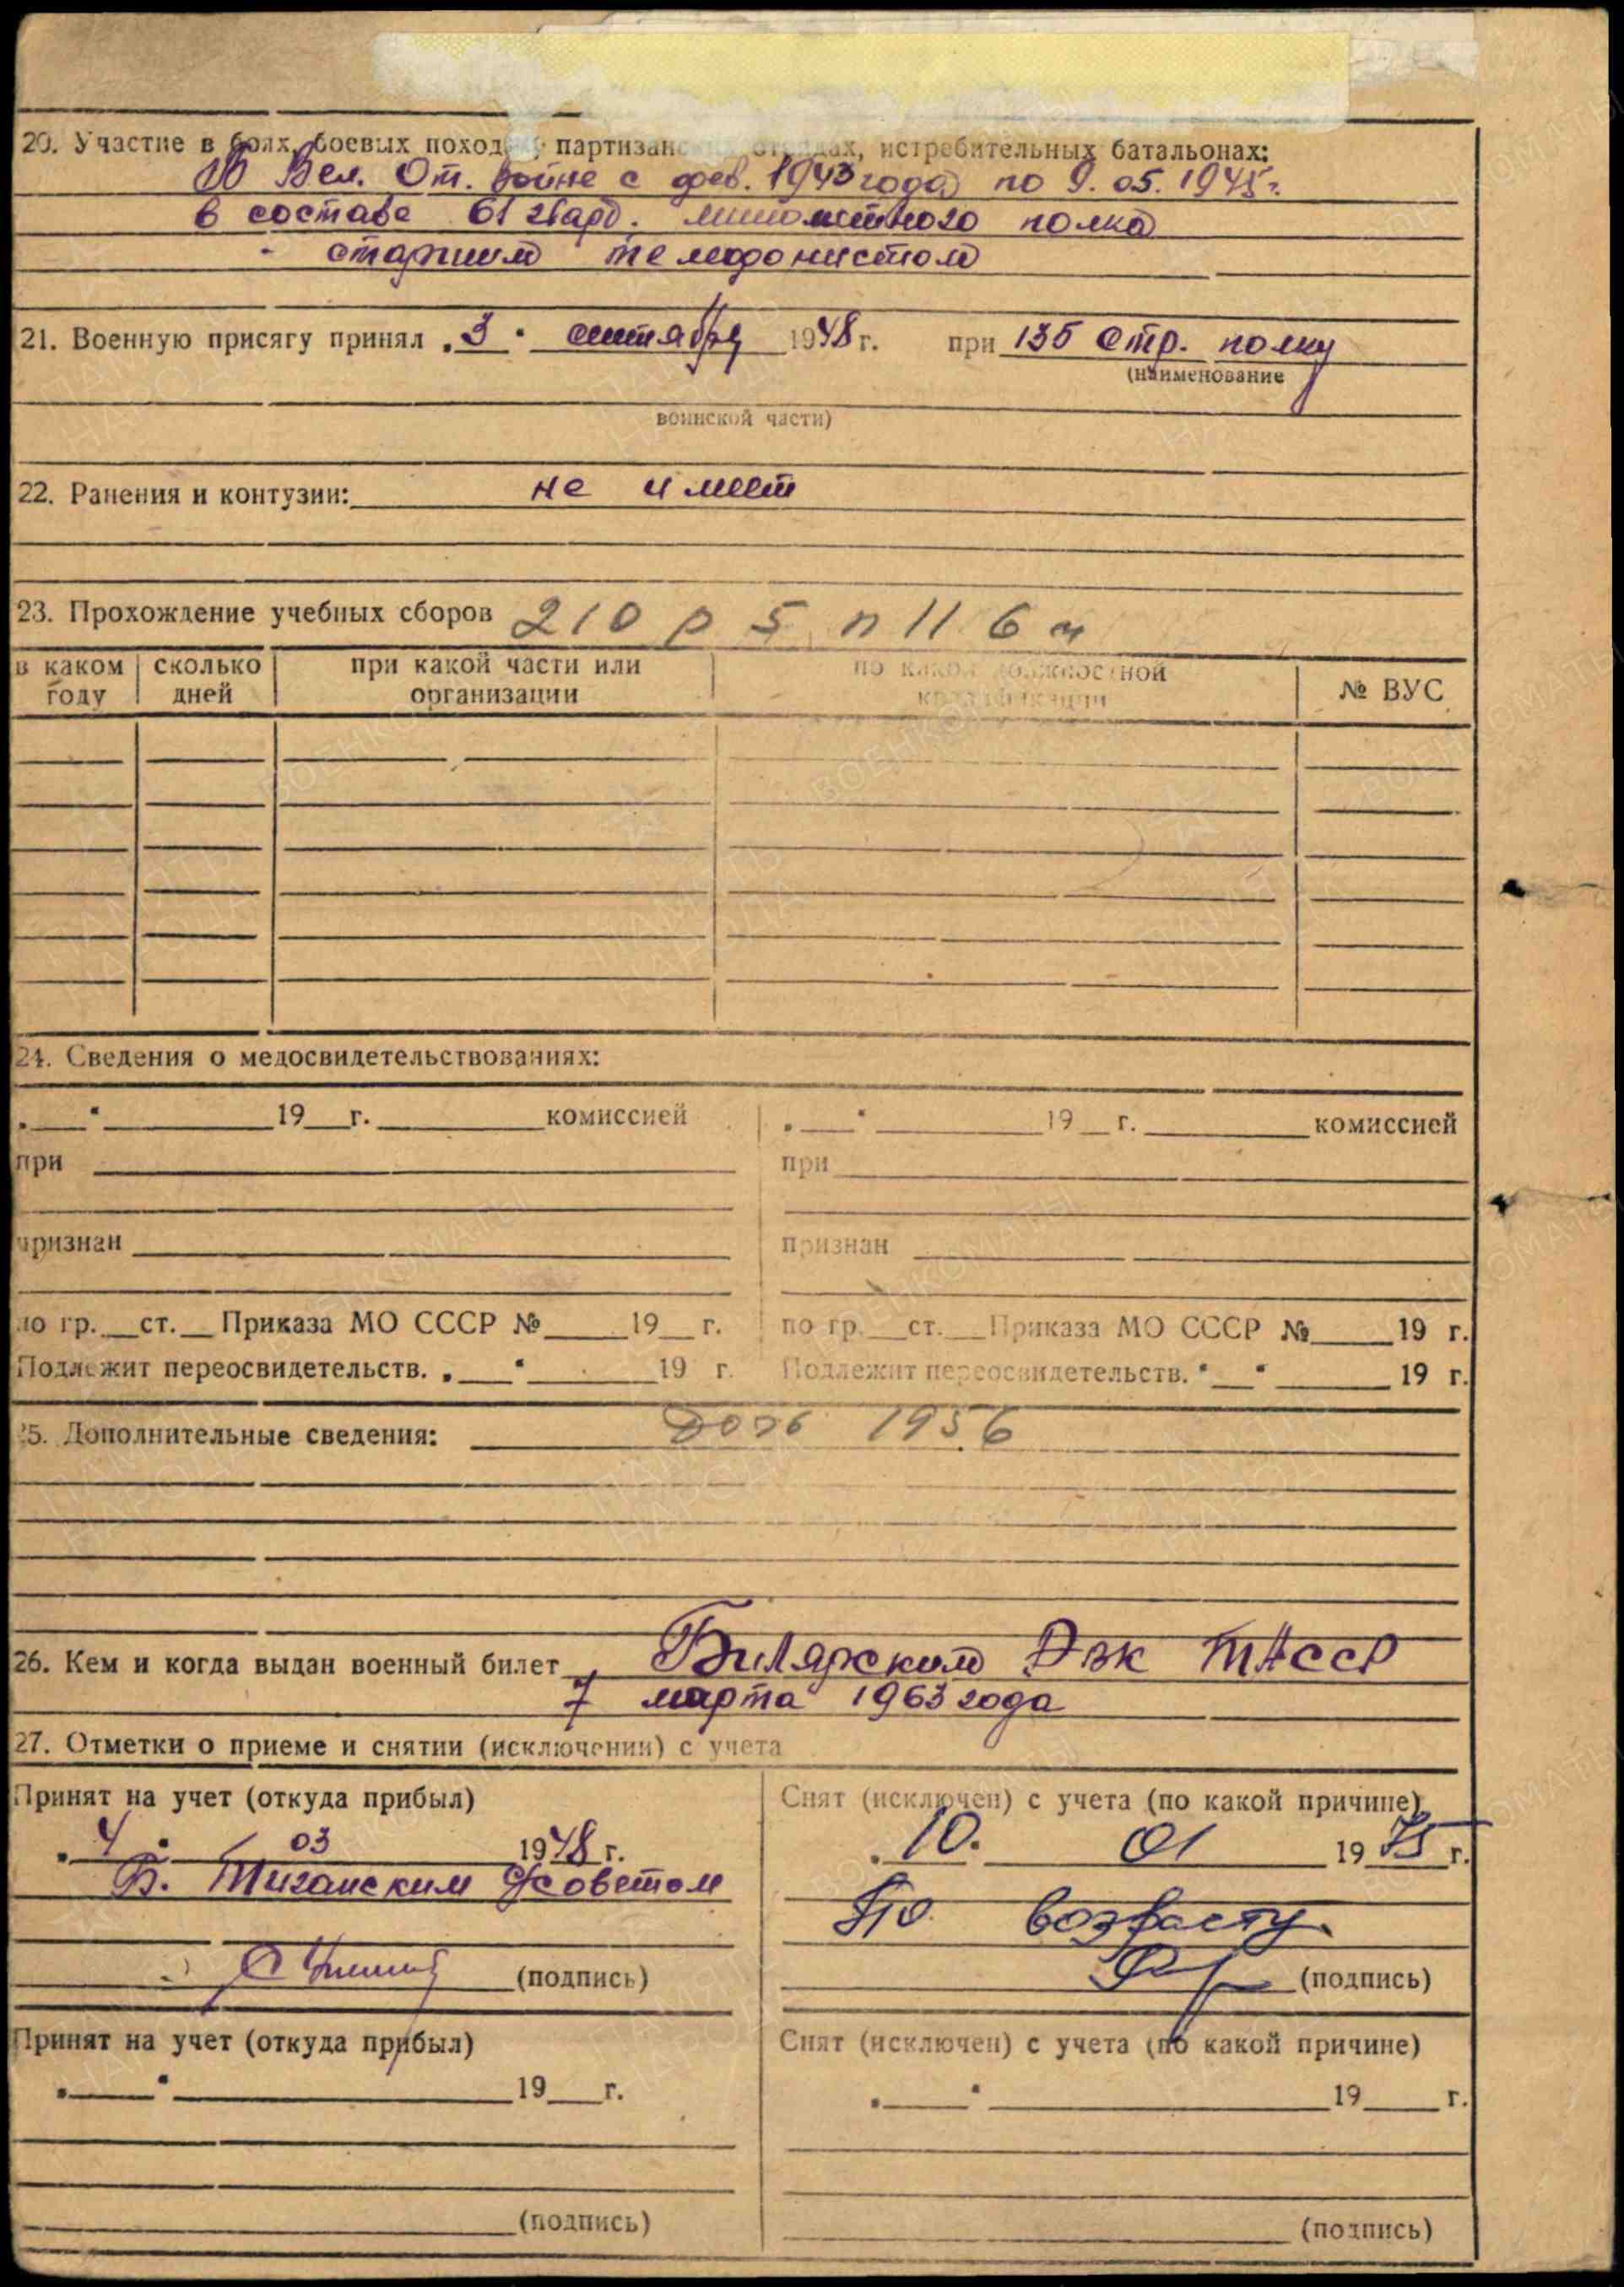 20. Участие в боях, боевых походах, партизанских отрядах, истребительных батальонах:
В Вел. От. войне с фев. 1943 года по 9.05.1945 г.
в составе 61 гвард. минометного полка
- старшим телефонистом
21. Военную присягу принял „3“ сентября 1948 г. при 135 стр. полку
(наименование
воинской части)
22. Ранения и контузии: не имеет
23. Прохождение учебных сборов 210 р 5 п 11 6
в каком году | сколько дней | при какой части или организации | по какой должностной квалификации | № ВУС
24. Сведения о медосвидетельствованиях:
„__“ ____ 19__г. ____ комиссией „__“ ____ 19__г. ____ комиссией
при при
признан признан
по гр.__ст.__Приказа МО СССР №____19__г. по гр.__ст.__Приказа МО СССР №____19 г.
Подлежит переосвидетельств. „__“ ____19 г. Подлежит переосвидетельств. „__“ ____ 19 г.
25. Дополнительные сведения: 1956
26. Кем и когда выдан военный билет Билярским РВК ТАССР
7 марта 1963 года
27. Отметки о приеме и снятии (исключении) с учета
Принят на учет (откуда прибыл) Снят (исключен) с учета (по какой причине)
„4“ 03 1948 г. „10.“ 01 1975 г.
Б. Тиганским с/советом По возрасту
(подпись) (подпись)
Принят на учет (откуда прибыл) Снят (исключен) с учета (по какой причине)
„__“ ____ 19__г. „__“ ____ 19__г.
(подпись) (подпись)